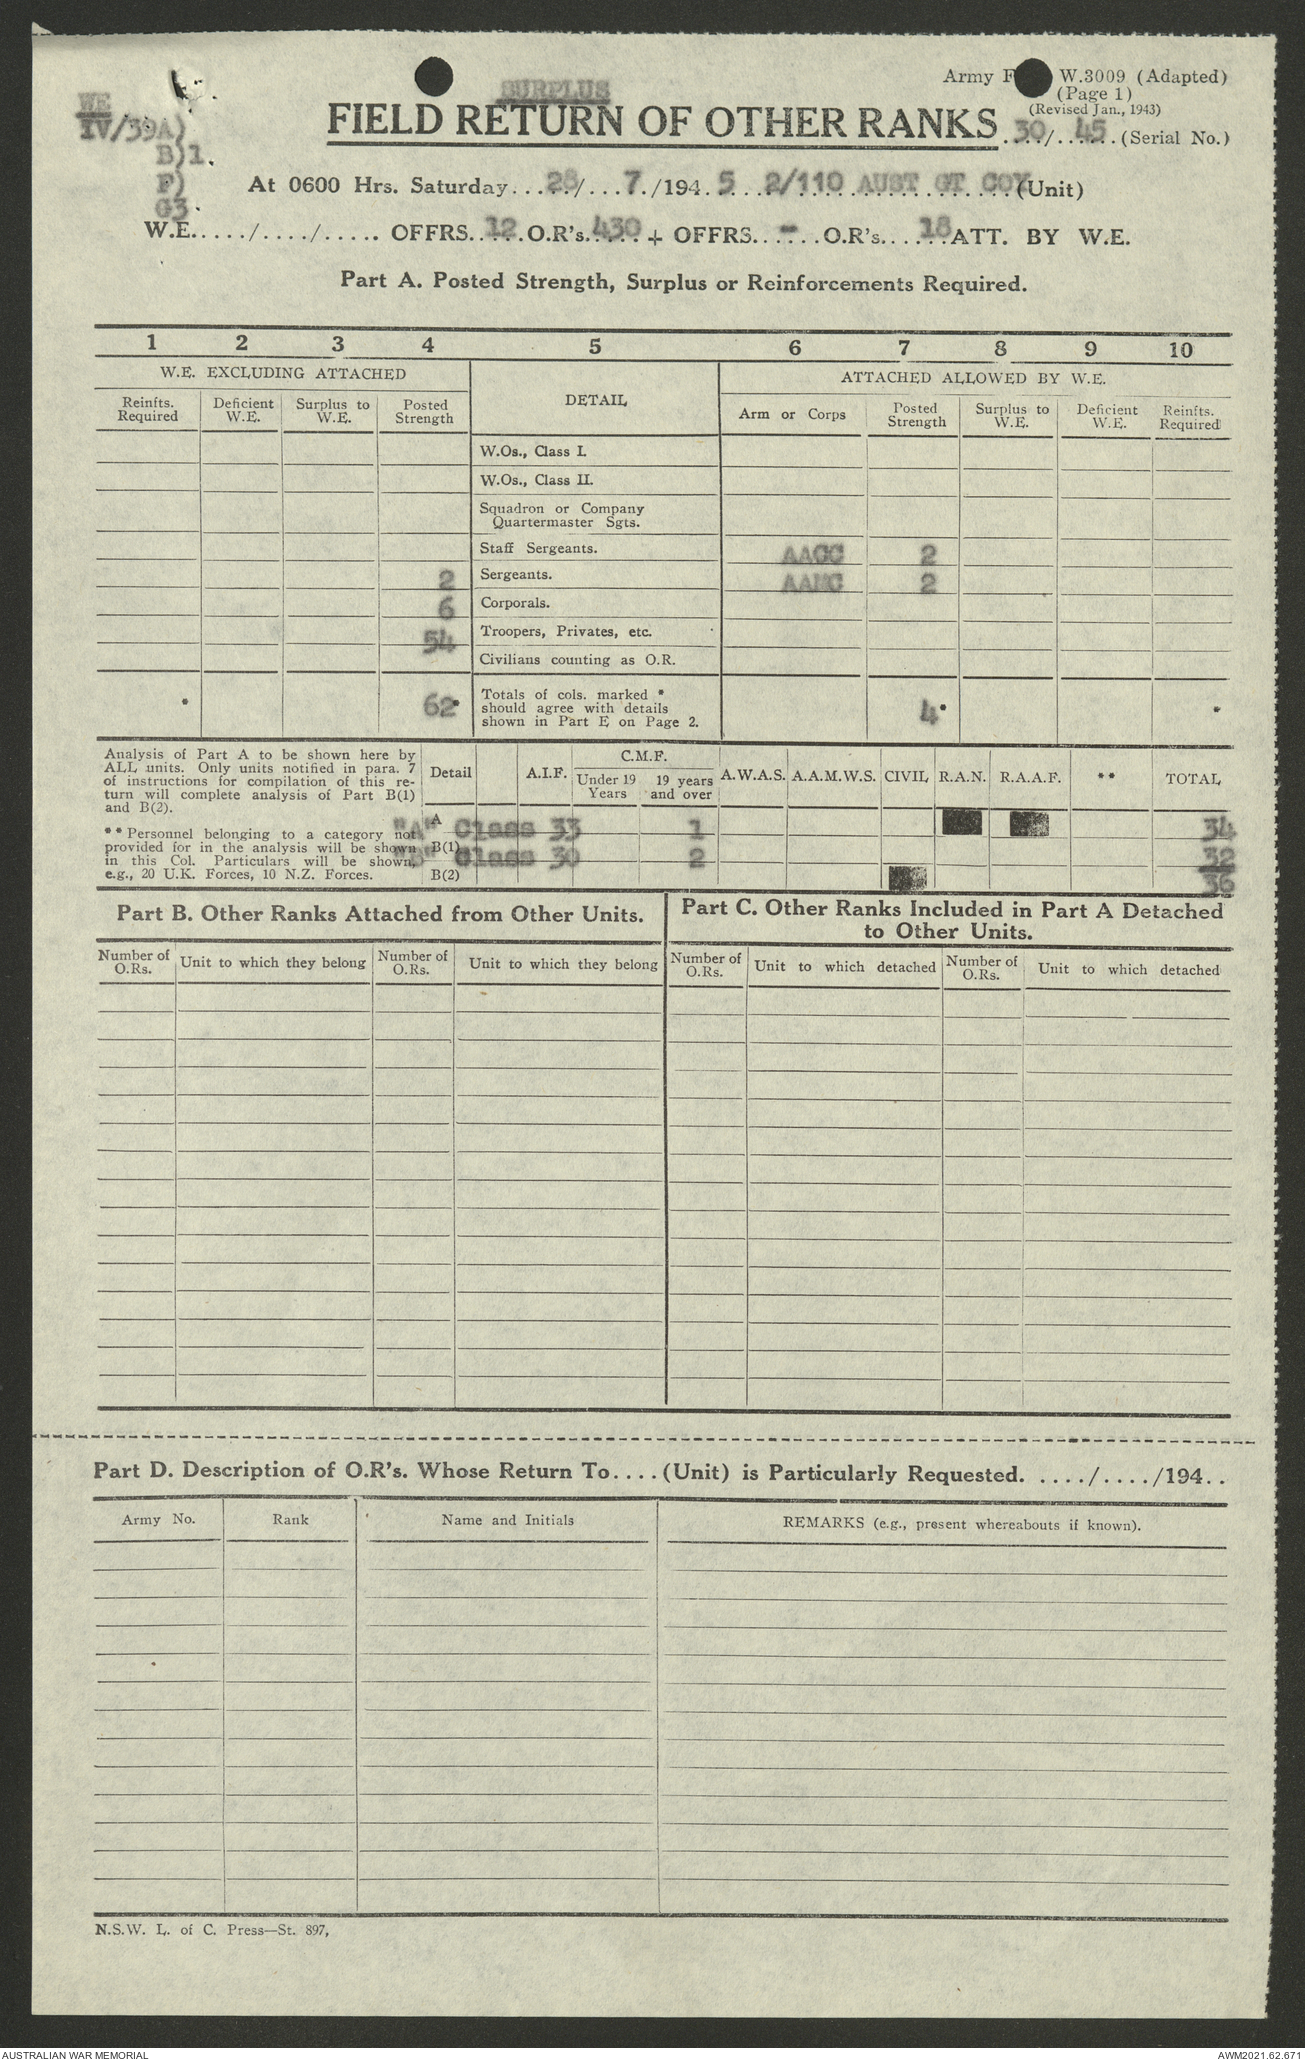 SURPLUS
Army F W.3009 (Adapted)
(Page 1)
(Revised Jan., 1943)
FIELD RETURN OF OTHER RANKS ....30/...45..(Serial No.)
WE
IV/39A)
B)1.
F)
G3.
At 0600 Hrs. Saturday...28/...7./194.5 2/110 AUST GT COY (Unit)
W.E...../..../..... OFFRS.12.O.R's.430 + OFFRS..-...O.R's....18 ATT. BY W.E.
Part A. Posted Strength, Surplus or Reinforcements Required.
1 2 3 4 5 6 7 8 9 10
W.E. EXCLUDING ATTACHED DETAIL ATTACHED ALLOWED BY W.E.
Reinfts. Required Deficient W.E. Surplus to W.E. Posted Strength Arm or Corps Posted Strength Surplus to W.E. Deficient W.E. Reinfts. Required
W.Os., Class I.
W.Os., Class II.
Squadron or Company
Quartermaster Sgts.
Staff Sergeants. AACC 2
2 Sergeants. AAMC 2
6 Corporals.
54 Troopers, Privates, etc.
Civilians counting as O.R.
* 62* Totals of cols. marked * 4* *
should agree with details
shown in Part E on Page 2.
Analysis of Part A to be shown here by
ALL units. Only units notified in para. 7
of instructions for compilation of this re-
turn will complete analysis of Part B(1)
and B(2).
** Personnel belonging to a category not
provided for in the analysis will be shown
in this Col. Particulars will be shown,
e.g., 20 U.K. Forces, 10 N.Z. Forces.
Detail A.I.F. C.M.F. Under 19 Years 19 years and over A.W.A.S. A.A.M.W.S. CIVIL R.A.N. R.A.A.F. ** TOTAL
A "A" Class 33 1 34
B(1) "B" Class 30 2 32
B(2) 36
Part B. Other Ranks Attached from Other Units.
Part C. Other Ranks Included in Part A Detached
to Other Units.
Number of O.Rs. Unit to which they belong Number of O.Rs. Unit to which they belong Number of O.Rs. Unit to which detached Number of O.Rs. Unit to which detached
Part D. Description of O.R's. Whose Return To....(Unit) is Particularly Requested. ..../..../194..
Army No. Rank Name and Initials REMARKS (e.g., present whereabouts if known).
N.S.W. L. of C. Press—St. 897,
AUSTRALIAN WAR MEMORIAL AWM2021.62.671